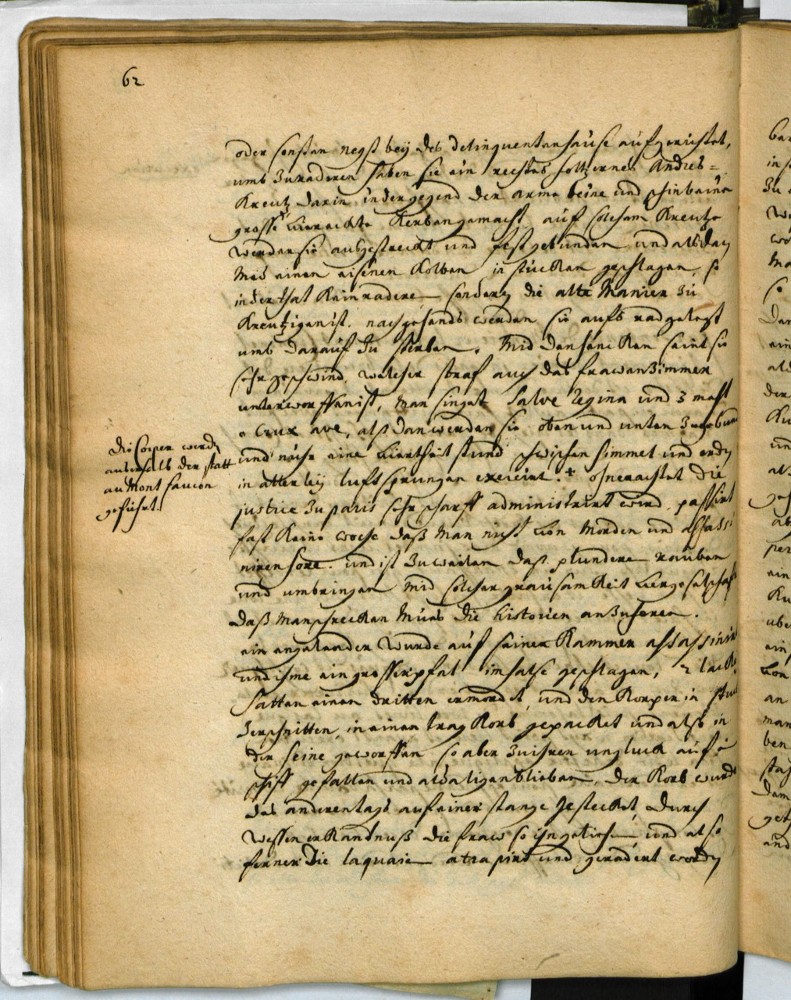 62
oder sonsten negst bey des delinquenten hause aufgerichtet,
umb zu raderen haben sie ein rechtes holtzernes Andres-
Kreutz darin in der gegend der arme beine und schinbeine
grosse Kerben gemacht, auf solchem Kreutze
werden sie ausgestreckt und fest gebunden und alsdan
mit einen eisenen Kolben in stücken geschlagen, so
in der that kein raderen sondern die alte Manier zu
Kreutzigen ist, nachgehends werden sie aufs rad gelegt
umb darauf zu sterben. Mid den hencken seint sie
sehr geschwind, welcher straf auch das frawenzimmer
unterworffen ist, man singet Salve Regina und 3 mahl
o Crux ave, alsdan werden sie oben und unten
und noch eine viertheil stund zwischen himmel und erden
in allerley luftsprungen exercirt. + ohnerachtet die
justice zu paris sehr scharff administrirt wird, passirt
fast keine woche daß man nicht von morden und assassi
niren höre. und ist zuweilen daß plunderen rauben
und umbringen mid solcher grausamkeit vergeselschaft
daß man schrecken mues die historien anzuhören.
ein engelander wurde auf seiner Kammer assassinirt
und ihme ein grosser pfal im halse geschlagen, 2
hatten einen dritten ermordet, und den Korper in
zerschnitten, in einen trag Korb gepacket und also in
die seine geworffen so aber zu ihren ungluck auf ein
schiff gefallen und alda ligen blieben, der Korb wurde
des anderen tags auf einer stange gestecket, durch
wessen erkandnuß die fraw so ihn geliehen, und also
ferner die laquaien atrapirt und geradert worden
Die Corper werden
ausserhalb der statt
au Mont faucon
geführt.